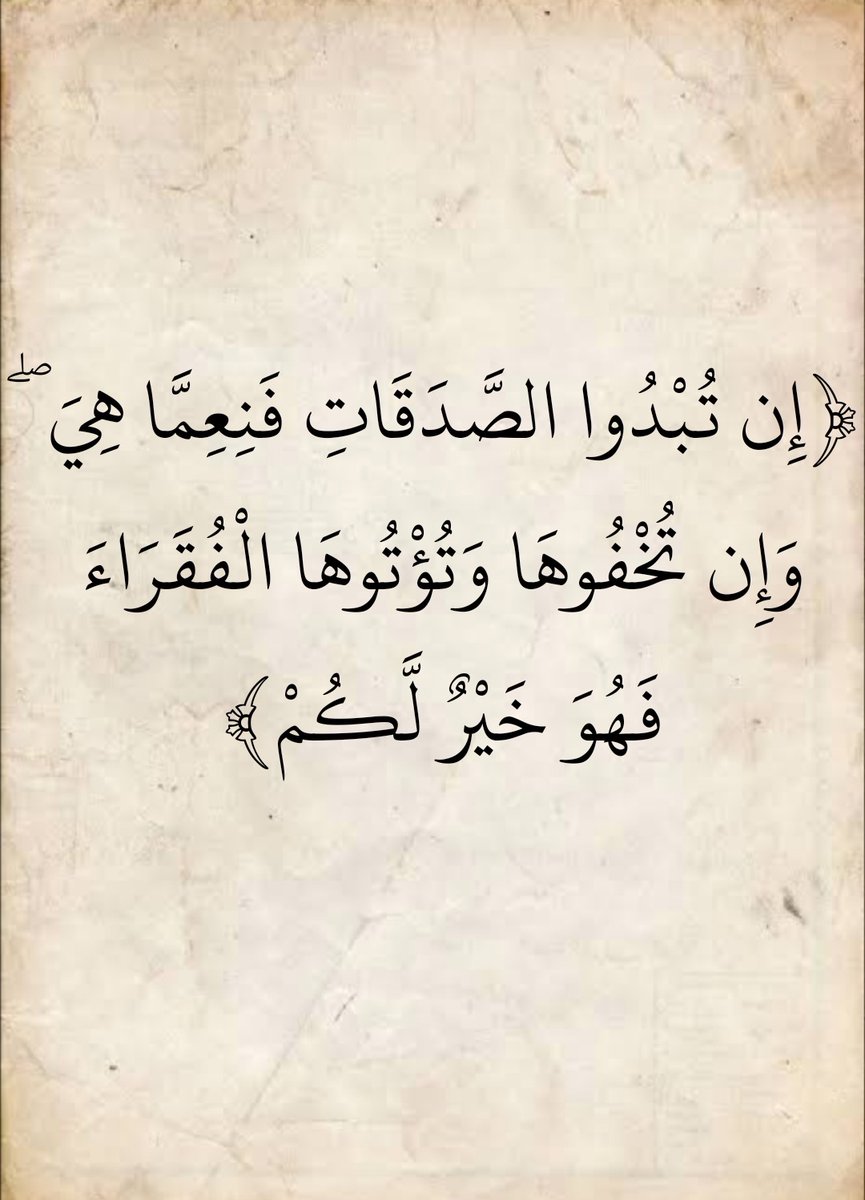 ﴿إِن تُبْدُوا الصَّدَقَاتِ فَنِعِمَّا هِيَ ۖ
وَإِن تُخْفُوهَا وَتُؤْتُوهَا الْفُقَرَاءَ
فَهُوَ خَيْرٌ لَّكُمْ﴾